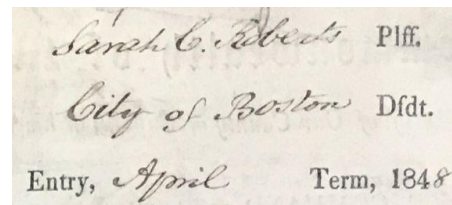 Sarah C. Roberts Plff.
City of Boston Dfdt.
Entry, April Term, 1848